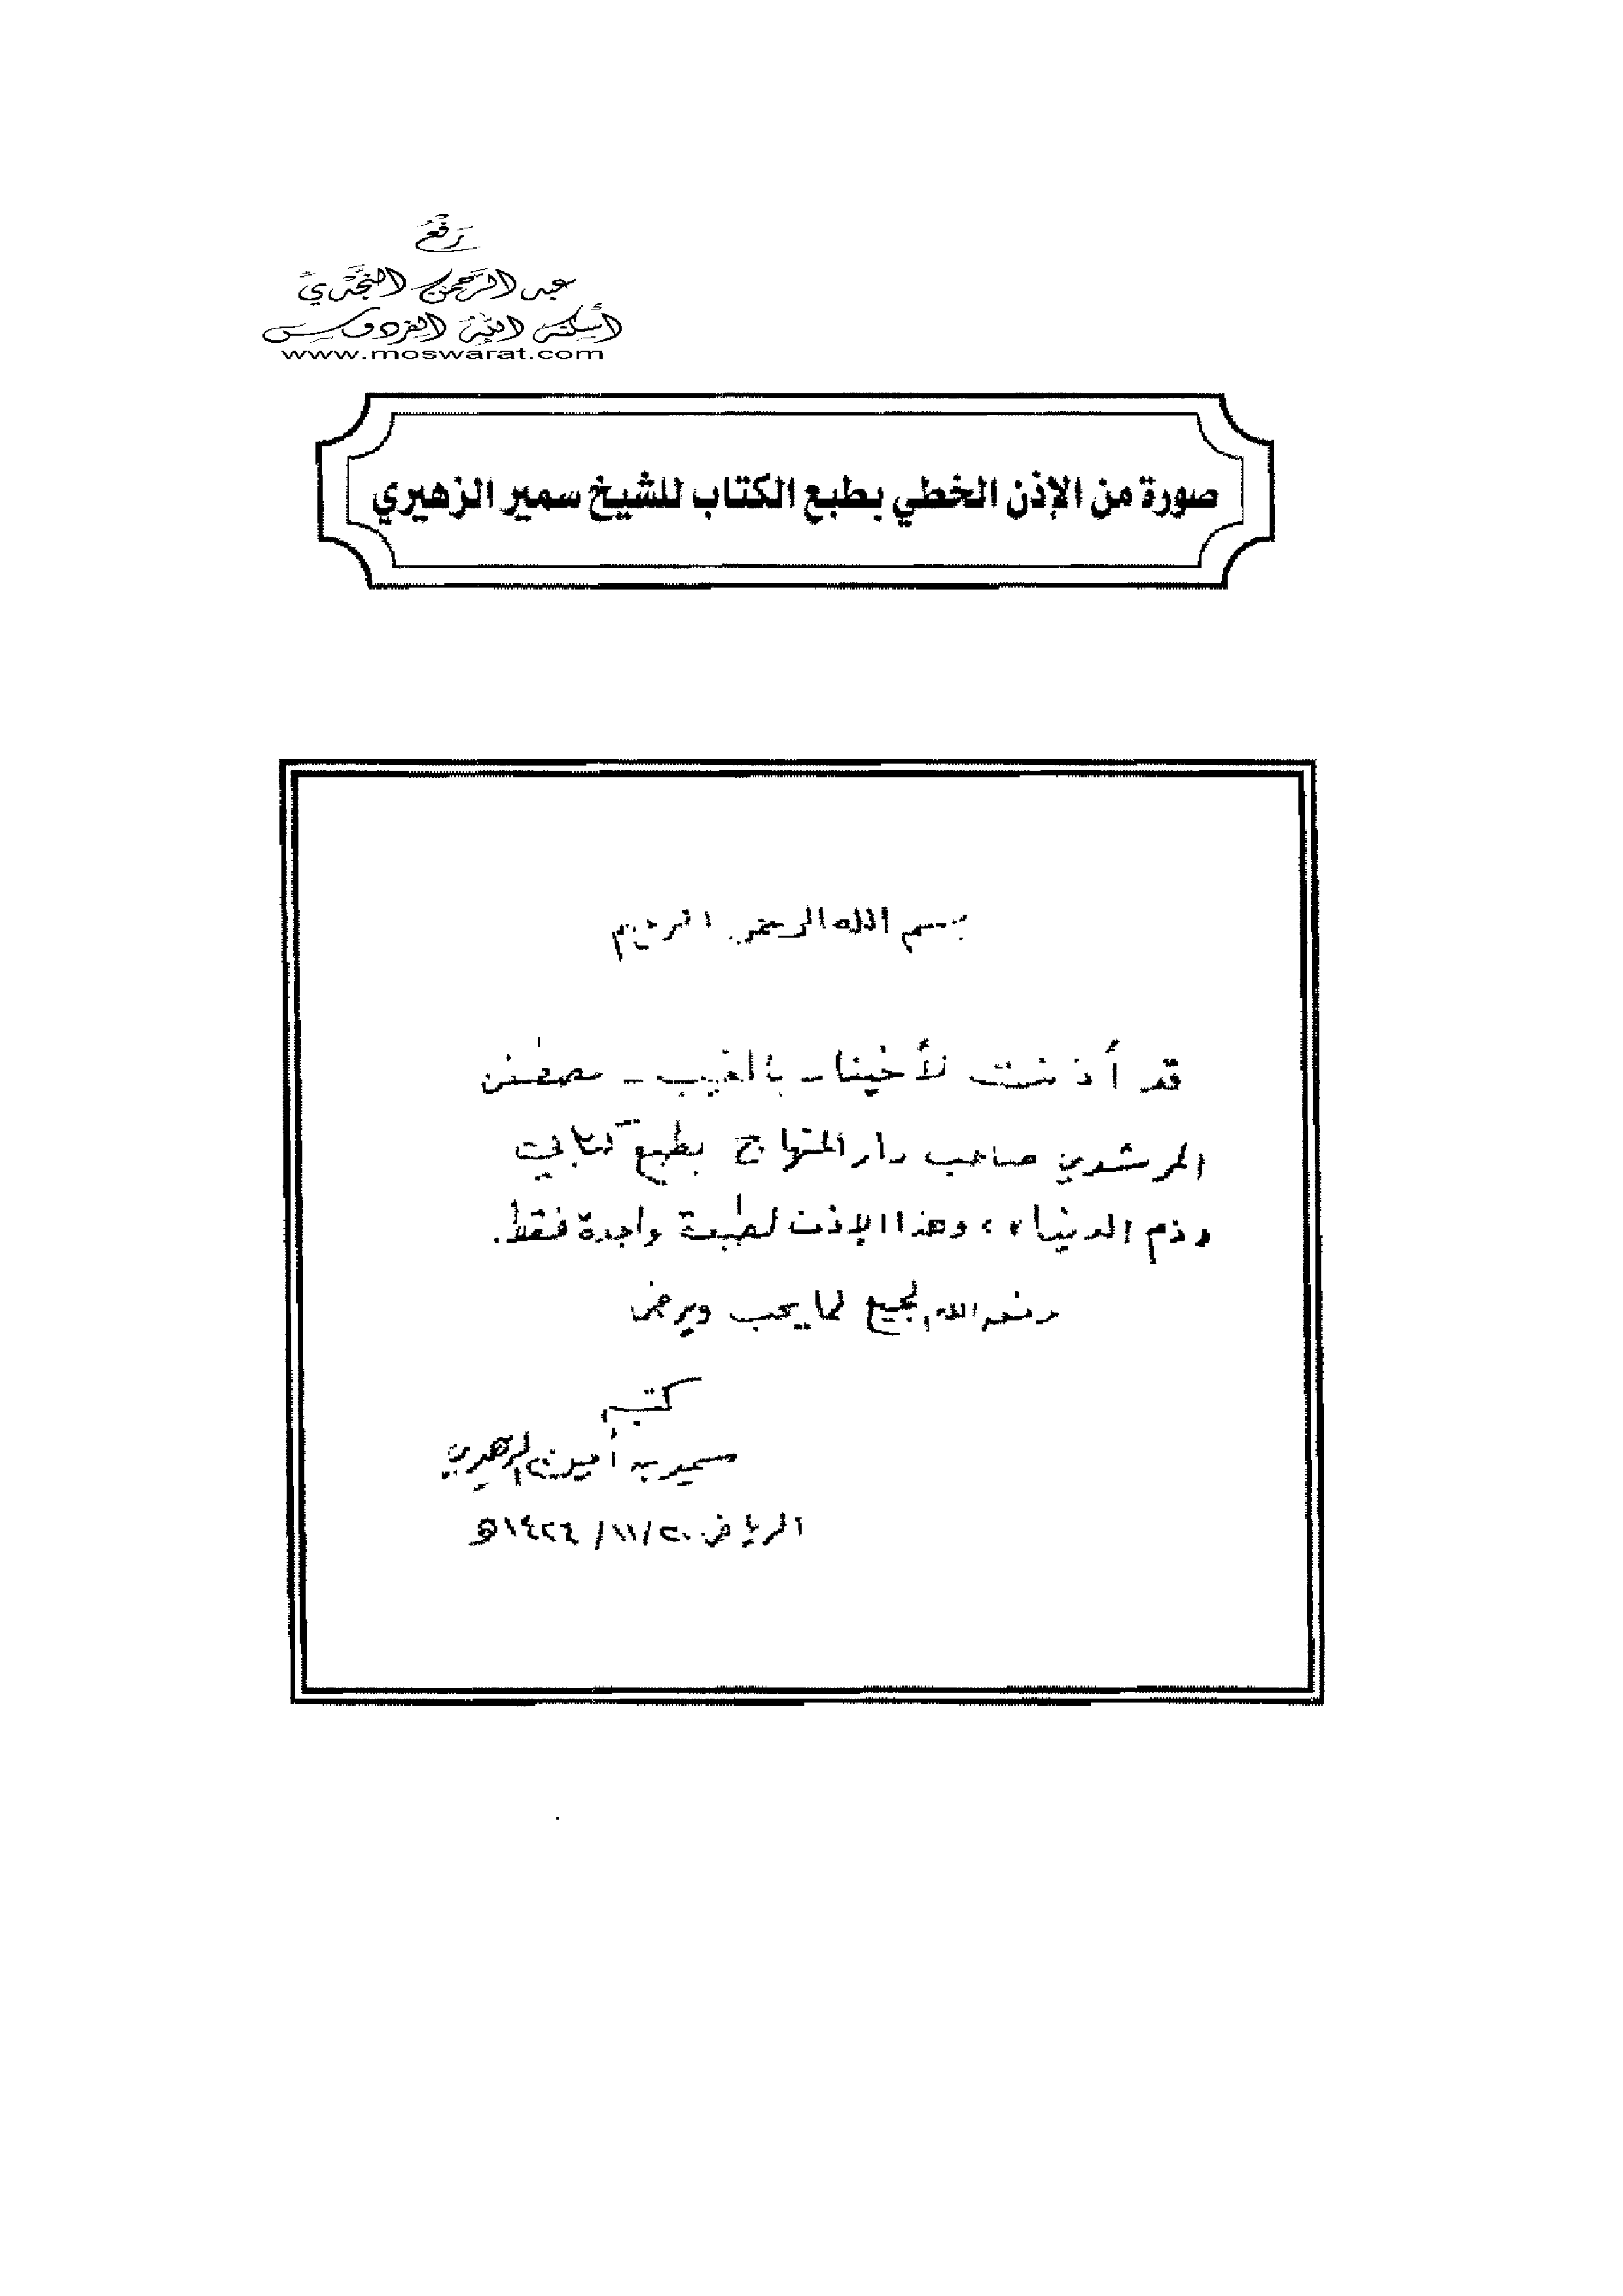 رفع
عبد الرحمن النجدي
أسكنه الله الفردوس
www.moswarat.com
صورة من الإذن الخطي بطبع الكتاب للشيخ سمير الزهيري
بسم الله الرحمن الرحيم
قد أذنت لأخينا - بالغيب - مصطفى
المرشدي صاحب دار المنهاج بطبع كتابي
«ذم الدنيا»، وهذا الإذن لطبعة واحدة فقط.
وفق الله الجميع لما يحب ويرضى
كتبه
سمير بن أمين الزهيري
الرياض ٢٠/١١/١٤٢٤هـ